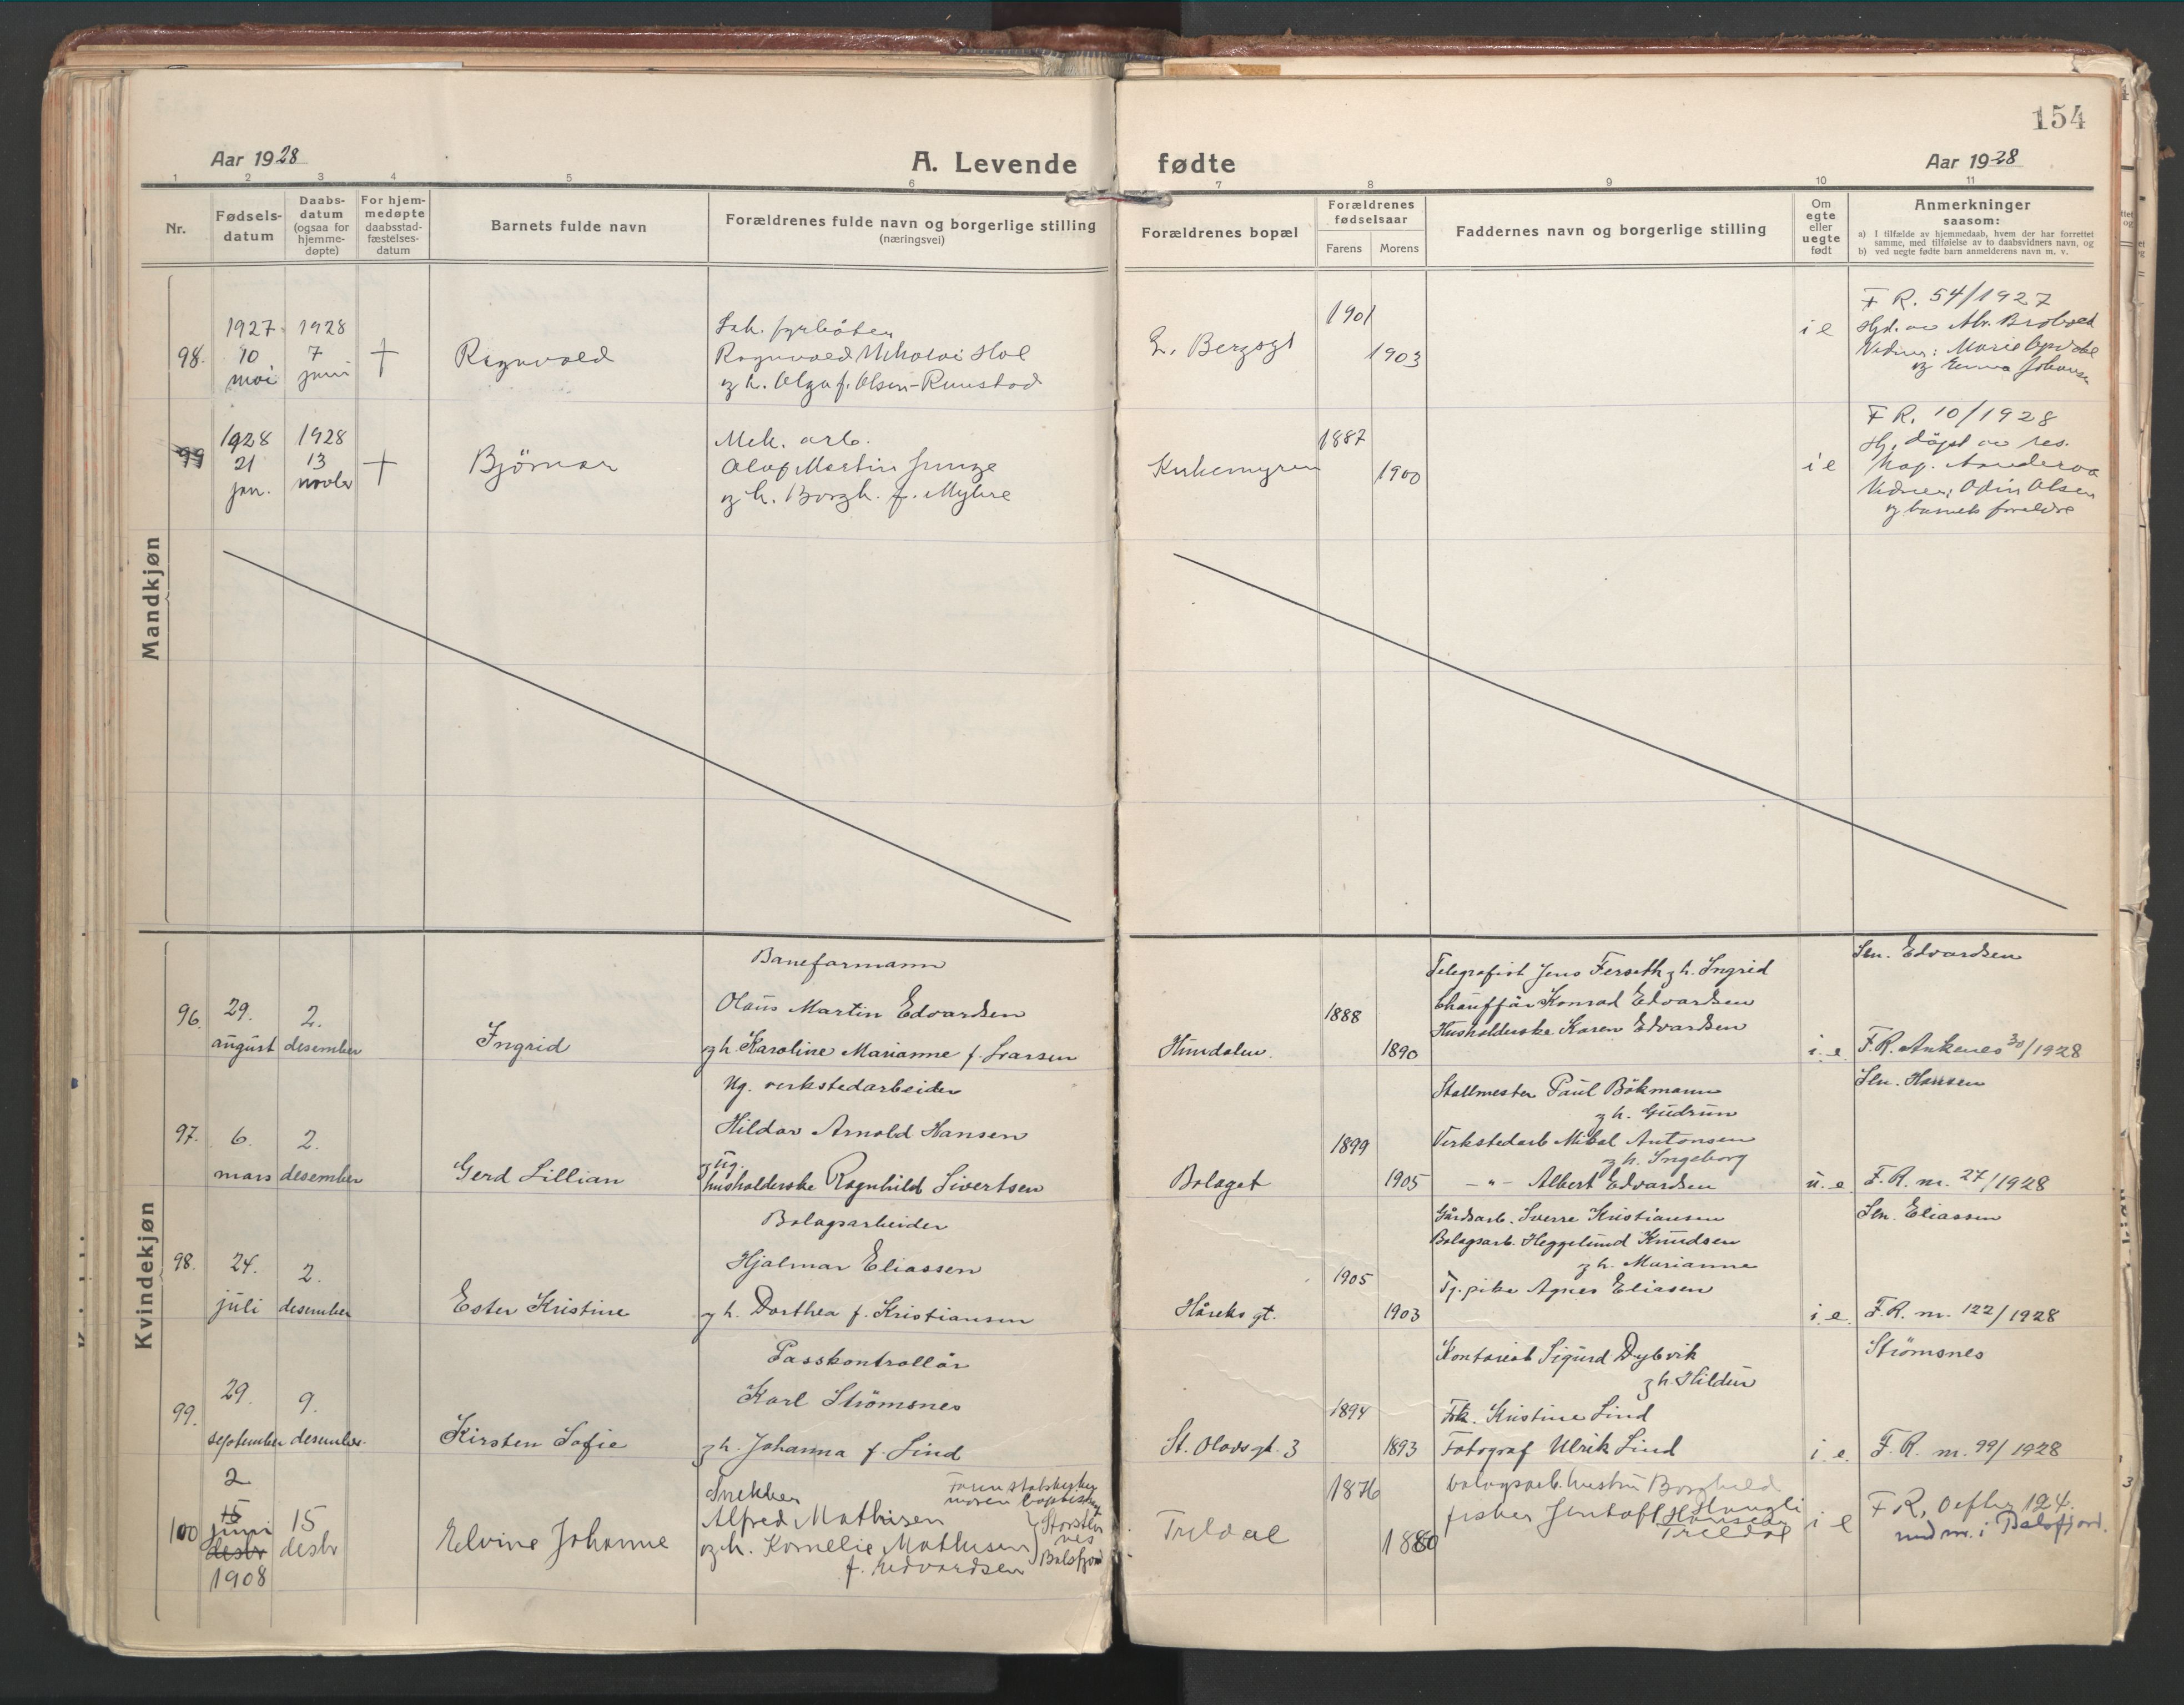 154
Aar 1928
A. Levende fødte
Aar 1928
1 2 3 4 5 6 7 8 9 10 11
Nr.
Fødsels-
datum
Daabs-
datum
(ogsaa for
hjemme-
døpte)
For hjem-
medøpte
daabsstad-
fæstelses-
datum
Barnets fulde navn
Forældrenes fulde navn og borgerlige stilling
(næringsvei)
Forældrenes bopæl
Forældrenes
fødselsaar
Farens Morens
Faddernes navn og borgerlige stilling
Om
egte
eller
uegte
født
Anmerkninger
saasom:
a) I tilfælde av hjemmedaab, hvem der har forrettet
samme, med tilføielse av to daabsvidners navn, og
b) ved uegte fødte barn anmelderens navn m. v.
Mandkjøn
98.
1927
10
mai
1928
7
juni
†
Ragnvald
Lok. fyrböter
Ragnvald Nikolai Hol
og h. Olga f. Olsen-Ruustad
1901
1903
i e
F R. 54/1927
og Emma Johansen
99
1928
21
jan.
1928
13
novbr
†
Björnar
Mek. arb.
Olaf Martin
og h. Borgh. f. Myhre
Kirkemyren
1887
1900
i e
F R. 10/1928
Hj. döpt av res.
kap.
Vidner: Odin Olsen
og barnets foreldre
Kvindekjøn
96.
29.
august
2.
desember
Ingrid
Baneformann
Olaus Martin Edvardsen
og h. Karoline Marianne f. Larsen
Hundalen.
1888
1890
Telegrafist Jens Ferseth og h. Ingrid
Chaufför Konrad Edvardsen
Husholderske Karen Edvardsen
i. e.
Sen. Edvardsen
F.R. Ankenes 30/1928
97.
6.
mars
2.
desember
Gerd Lillian
Ug. verkstedarbeider
Hildor Arnold Hansen
og ug.
husholderske Ragnhild Sivertsen
Bolaget
1899
1905
Stallmester Paul Bökmann
og h. Gudrun
Verkstedarb Mikal Antonsen
og h. Ingeborg
– " – Albert Edvardsen
u. e.
Sen. Hansen
F. R. nr. 27/1928
98.
24.
juli
2.
desember
Ester Kristine
Bolagsarbeider
Hjalmar Eliassen
og h. Dorthea f. Kristiansen
Håreks gt.
1905
1903
Gårdsarb. Sverre Kristiansen
Bolagsarb. Heggelund Knudsen
og h. Marianne
Tj. pike Agnes Eliasen
i. e.
Sen. Eliassen
F. R. nr. 122/1928
99.
29.
september
9.
desember.
Kirsten Sofie
Passkontrollör
Karl Strömsnes
og h. Johanna f. Lind
St. Olavs gt. 3
1894
1893
Kontorist Sigurd Dybvik
og h. Hildur
Frk. Kristine Lind
Fotograf Ulrik Lind
i. e.
Strömsnes
F. R. nr. 99/1928
100
2
15
juni
desbr
1908
15
desbr
Elvine Johanne
Snekker
Alfred Mathisen
og h. Kornelie Mathisen
f. Edvardsen
Faren statskirken
moren baptist
Balsfjord
Treldal
1876
1880
bolagsarb. hustru Borghild
Haugli
fisker Jentoft Hansen
Treldal
i e
F R, Oefter 124.
und nr. i Balsfjord.